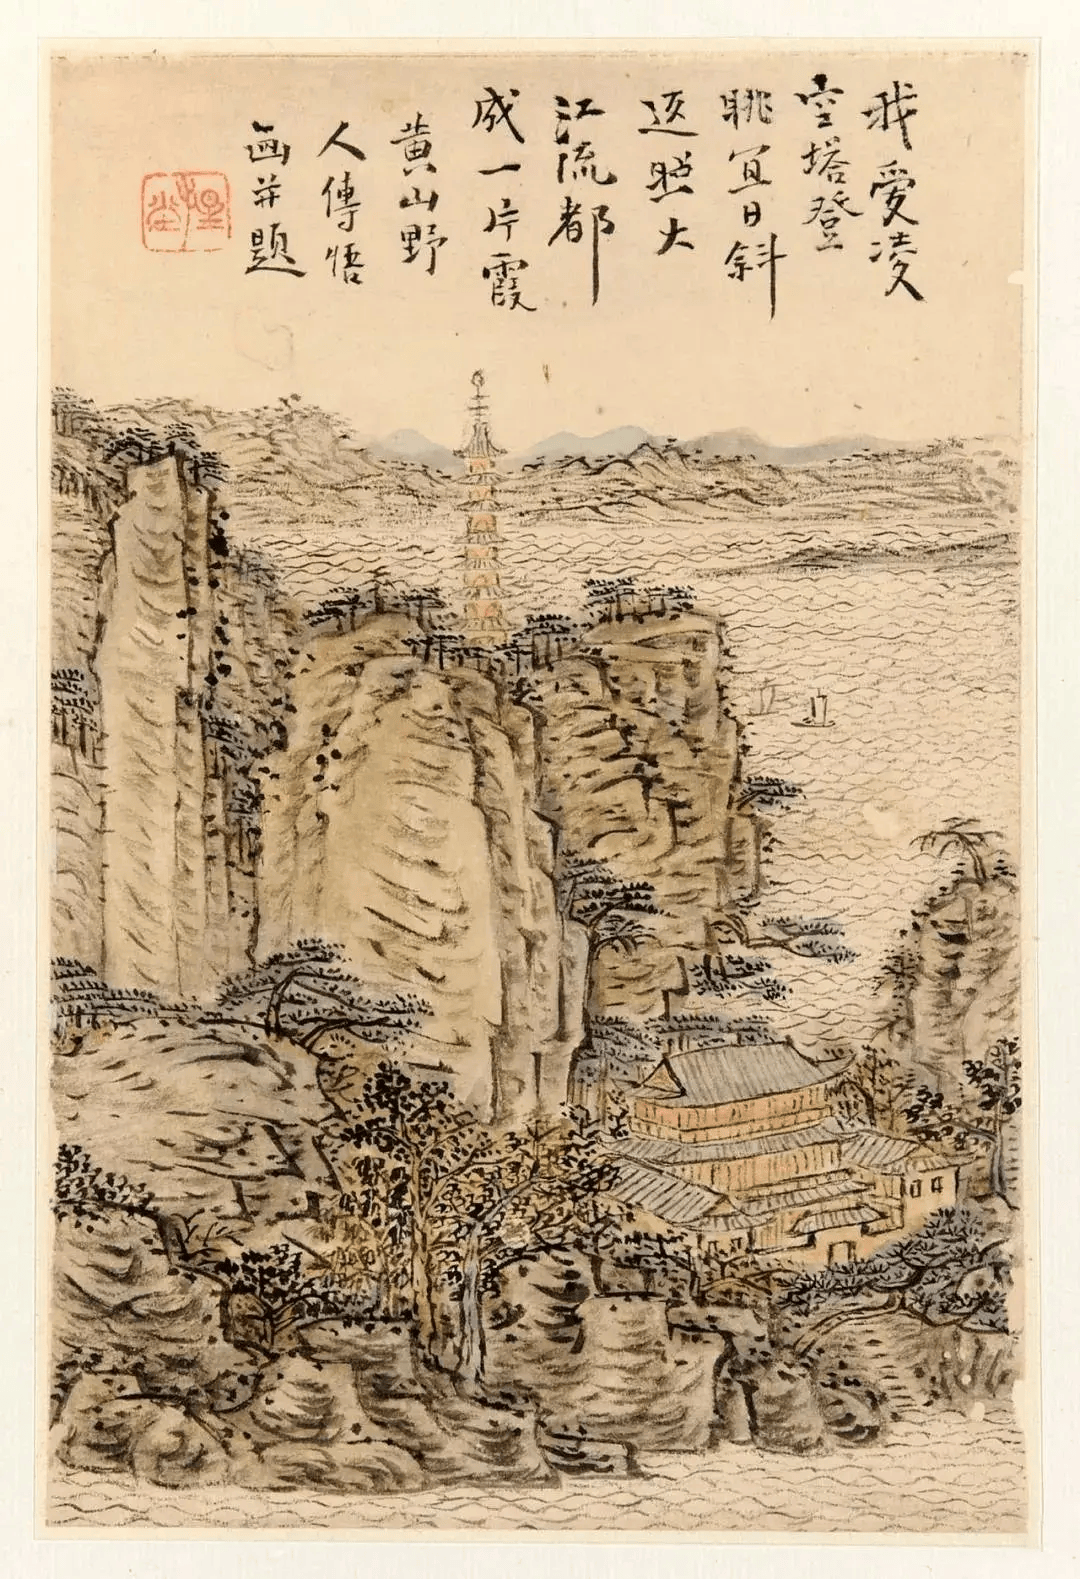 我愛凌
空塔登
眺宜日斜
返照大
江流都
成一片霞
黄山野
人傳悟
画并题